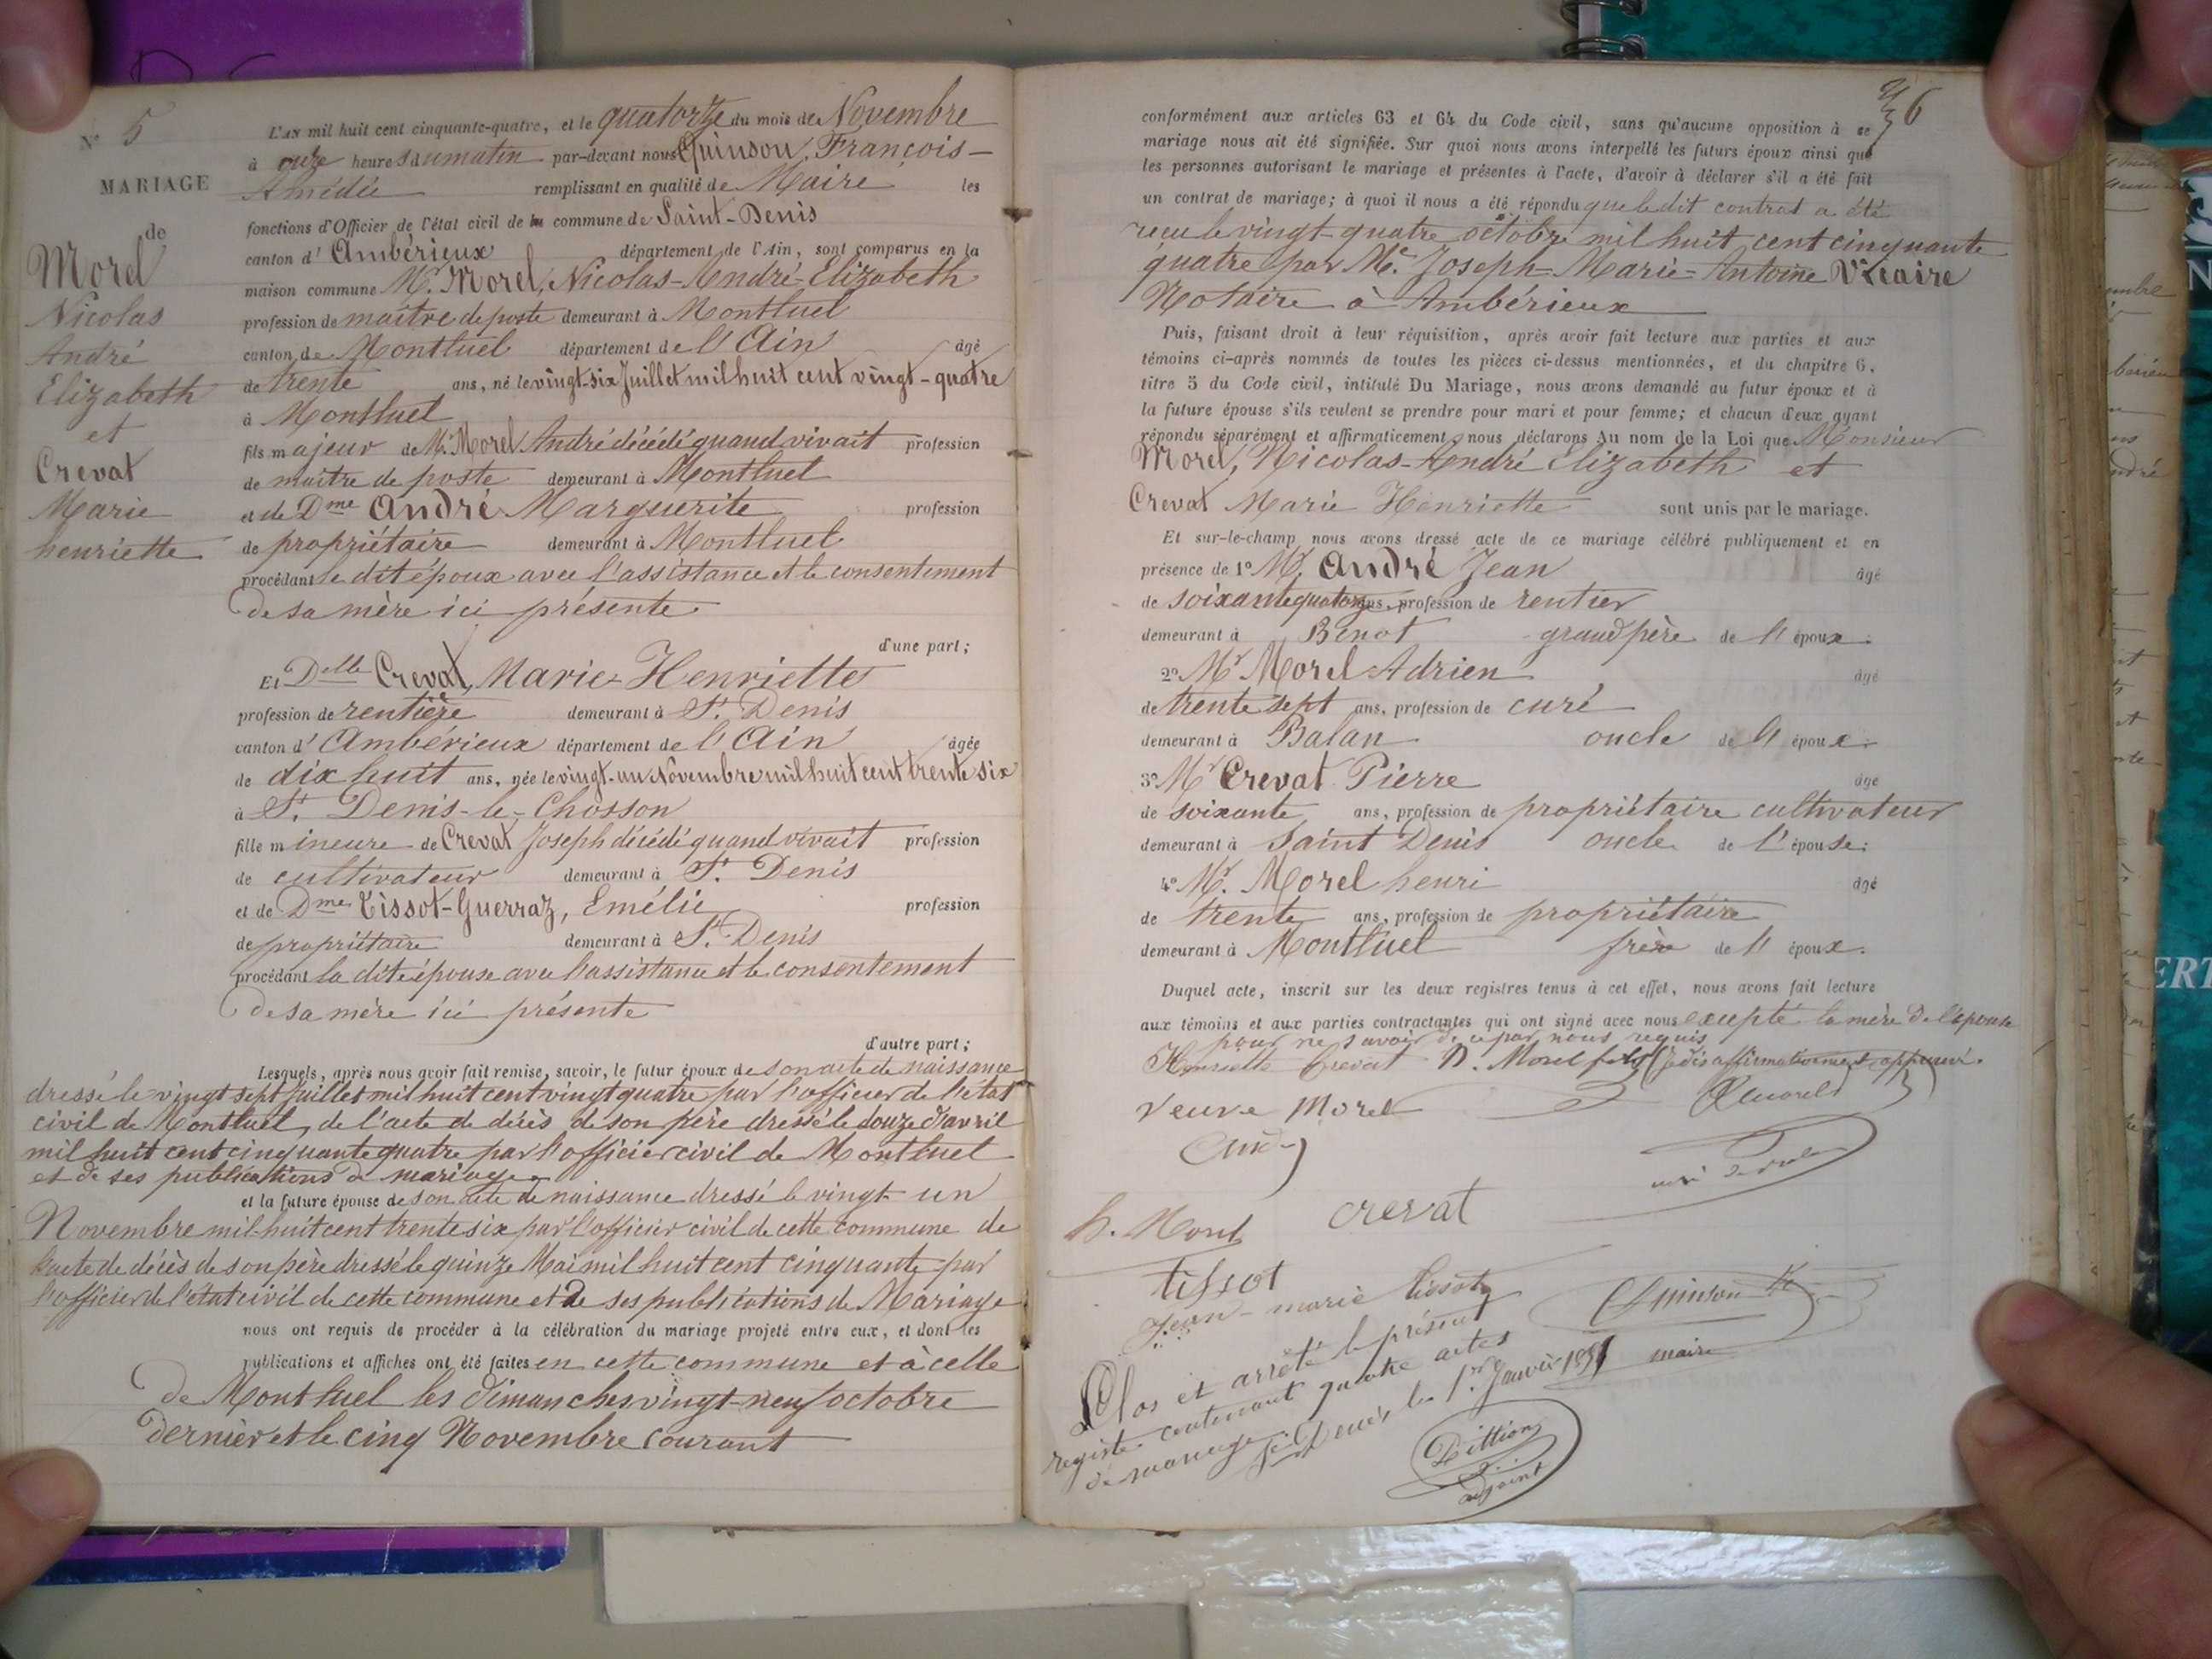 N° 5
MARIAGE
de
Morel
Nicolas
André
Elizabeth
et
Crevat
Marie
henriette
L'AN mil huit cent cinquante-quatre, et le quatorze du mois de Novembre
à onze heures du matin par-devant nous Quinson, François-
Amédée remplissant en qualité de Maire les
fonctions d'Officier de l'état civil de la commune de Saint-Denis
canton d'Ambérieux département de l'Ain, sont comparus en la
maison commune Mr. Morel, Nicolas-André-Elizabeth
profession de maître de poste demeurant à Montluel
canton de Montluel département de l'Ain âgé
de trente ans, né le vingt-six Juillet mil huit cent vingt-quatre
à Montluel
fils majeur de Mr. Morel André décédé quand vivait profession
de maître de poste demeurant à Montluel
et de Dme André Marguerite profession
de propriétaire demeurant à Montluel
procédant le dit époux avec l'assistance et le consentement
de sa mère ici présente
d'une part;
Et Delle Crevat, Marie-Henriette
profession de rentière demeurant à St. Denis
canton d'Ambérieux département de l'Ain âgée
de dix huit ans, née le vingt-un Novembre mil huit cent trente six
à St. Denis-le-Chosson
fille mineure de Crevat Joseph décédé quand vivait profession
de cultivateur demeurant à St. Denis
et de Dme Tissot-Guerraz, Emélie profession
de propriétaire demeurant à St. Denis
procédant la dite épouse avec l'assistance et le consentement
de sa mère ici présente
d'autre part;
Lesquels, après nous avoir fait remise, savoir, le futur époux de son acte de naissance
dressé le vingt sept Juillet mil huit cent vingt quatre par l'officier de l'état
civil de Montluel, de l'acte de décès de son père dressé le douze d'avril
mil huit cent cinquante quatre par l'officier civil de Montluel
et de ses publications de mariage
et la future épouse de son acte de naissance dressé le vingt un
Novembre mil huit cent trente six par l'officier civil de cette commune de
l'acte de décès de son père dressé le quinze Mai mil huit cent cinquante par
l'officier de l'état civil de cette commune et de ses publications de Mariage
nous ont requis de procéder à la célébration du mariage projeté entre eux, et dont les
publications et affiches ont été faites en cette commune et à celle
de Montluel les dimanches vingt-neuf octobre
dernier et le cinq Novembre courant
46
conformément aux articles 63 et 64 du Code civil, sans qu'aucune opposition à ce
mariage nous ait été signifiée. Sur quoi nous avons interpellé les futurs époux ainsi que
les personnes autorisant le mariage et présentes à l'acte, d'avoir à déclarer s'il a été fait
un contrat de mariage; à quoi il nous a été répondu que le dit contrat a été
recu le vingt-quatre octobre mil huit cent cinquante
quatre par Me. Joseph-Marie-Antoine Vicaire
Notaire à Ambérieux
Puis, faisant droit à leur réquisition, après avoir fait lecture aux parties et aux
témoins ci-après nommés de toutes les pièces ci-dessus mentionnées, et du chapitre 6,
titre 5 du Code civil, intitulé Du Mariage, nous avons demandé au futur époux et à
la future épouse s'ils veulent se prendre pour mari et pour femme; et chacun d'eux ayant
répondu séparément et affirmativement, nous déclarons Au nom de la Loi que Monsieur
Morel, Nicolas-André Elizabeth et
Crevat Marie Henriette sont unis par le mariage.
Et sur-le-champ nous avons dressé acte de ce mariage célébré publiquement et en
présence de 1° Mr. André Jean âgé
de soixante quatorze ans, profession de rentier
demeurant à Benot grand père de l'époux.
2° Mr Morel Adrien âgé
de trente sept ans, profession de curé
demeurant à Balan oncle de l'époux.
3° Mr Crevat Pierre âgé
de soixante ans, profession de propriétaire cultivateur
demeurant à Saint Denis oncle de l'épouse;
4° Mr. Morel henri âgé
de trente ans, profession de propriétaire
demeurant à Montluel frère de l'époux.
Duquel acte, inscrit sur les deux registres tenus à cet effet, nous avons fait lecture
aux témoins et aux parties contractantes qui ont signé avec nous excepté la mère de l'épouse
pour ne savoir de ce par nous requis
Henriette Crevat N. Morel fils
veuve Morel
André
crevat
tissot
Jean-marie tissot
Quinson
maire
Clos et arrêté le présent
registre contenant quatre actes
de mariage St Denis le 1er. Janvier
Dittion
adjoint